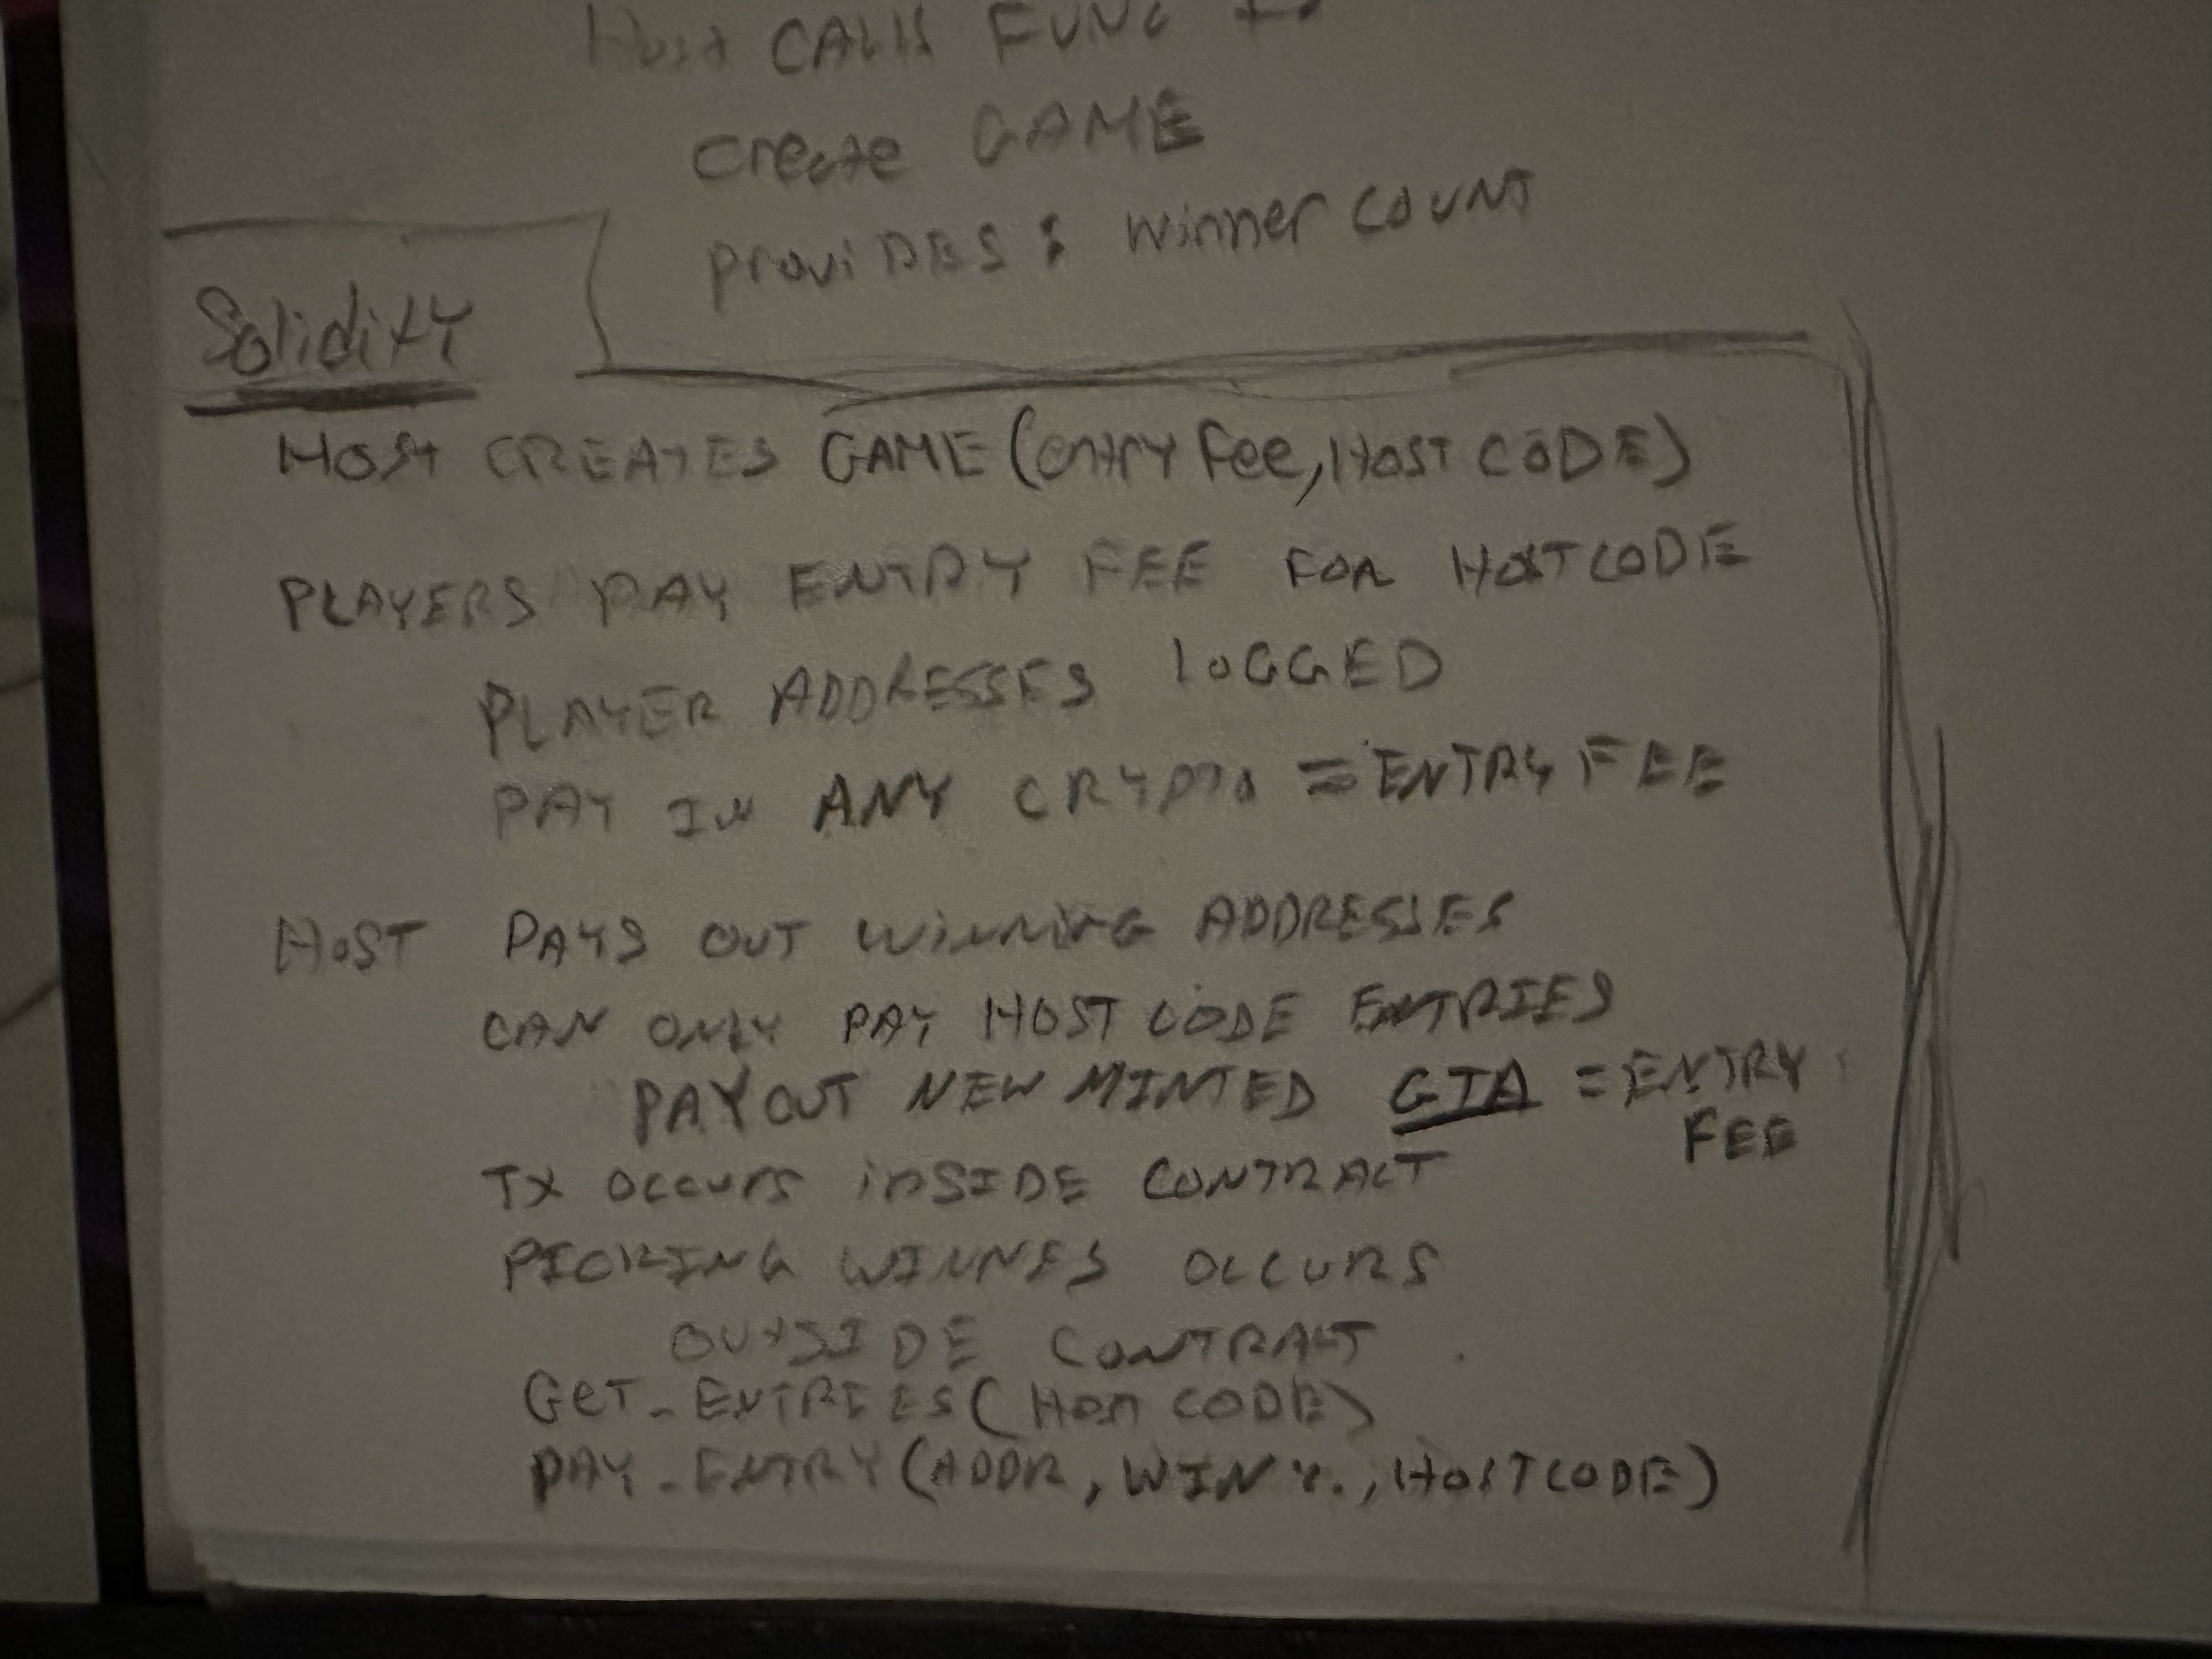 Host CALLS FUNC to
create GAME
proviDES : winner COUNT
Solidity
HOST CREATES GAME (entry Fee, HOST CODE)
PLAYERS PAY ENTRY FEE FOR HOSTCODE
PLAYER ADDRESSES LOGGED
PAY IN ANY CRYPTO = ENTRY FEE
HOST PAYS OUT WINNING ADDRESSES
CAN ONLY PAY HOST CODE ENTRIES
PAYOUT NEW MINTED GTA = ENTRY
FEE
TX OCCURS inSIDE CONTRACT
PICKING WINNES OCCURS
OUTSIDE CONTRACT
GET_ENTRIES( CODE)
PAY_ENTRY (ADDR, WIN %, HOSTCODE)